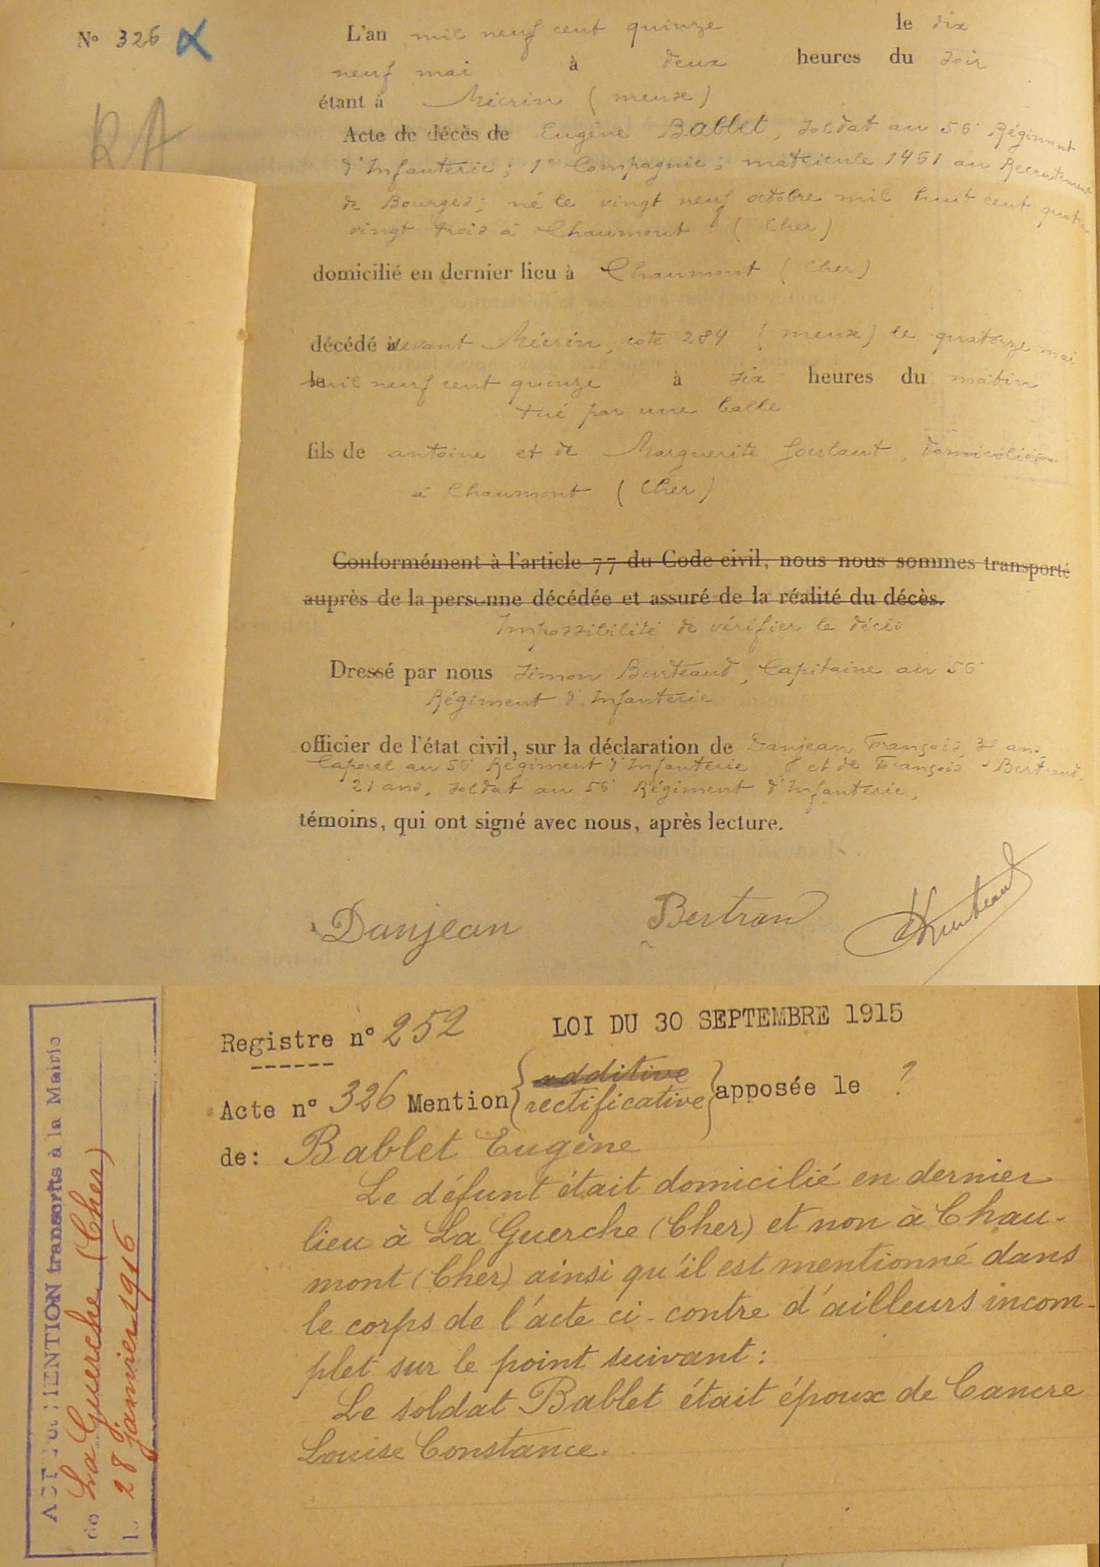 N° 326
RA
L'an mil neuf cent quinze le dix
neuf mai à deux heures du soir
étant à Mécrin (meuse)
Acte de décès de Eugène Bablet, soldat au 56e Régiment
d'Infanterie ; 1e Compagnie ; matricule 1461 au Recrutement
de Bourges ; né le vingt neuf octobre mil huit cent quatre
vingt trois à Chaumont (Cher)
domicilié en dernier lieu à Chaumont (Cher)
décédé devant Mécrin, cote 284 (meuse) le quatorze mai
mil neuf cent quinze à six heures du matin
tué par une balle
fils de antoine et de Marguerite , domiciliés
à Chaumont (Cher)
Conformément à l'article 77 du Code civil, nous nous sommes transporté
auprès de la personne décédée et assuré de la réalité du décès.
Impossibilité de vérifier le décès
Dressé par nous Simon Burteaud, Capitaine au 56e
Régiment d'Infanterie
officier de l'état civil, sur la déclaration de Danjean François, ans,
Caporal au 56e Régiment d'Infanterie et de François Bertrand,
21 ans, soldat au 56e Régiment d'Infanterie,
témoins, qui ont signé avec nous, après lecture.
Danjean Bertran
Registre n° 252 LOI DU 30 SEPTEMBRE 1915
Acte n° 326 Mention { additive
rectificative } apposée le ?
de : Bablet Eugène
Le défunt était domicilié en dernier
lieu à La Guerche (Cher) et non à Chau-
mont (Cher) ainsi qu'il est mentionné dans
le corps de l'acte ci-contre d'ailleurs incom-
plet sur le point suivant :
Le soldat Bablet était époux de Cancre
Louise Constance.
MENTION transcrits à la Mairie
de La Guerche (Cher)
le 28 janvier 1916